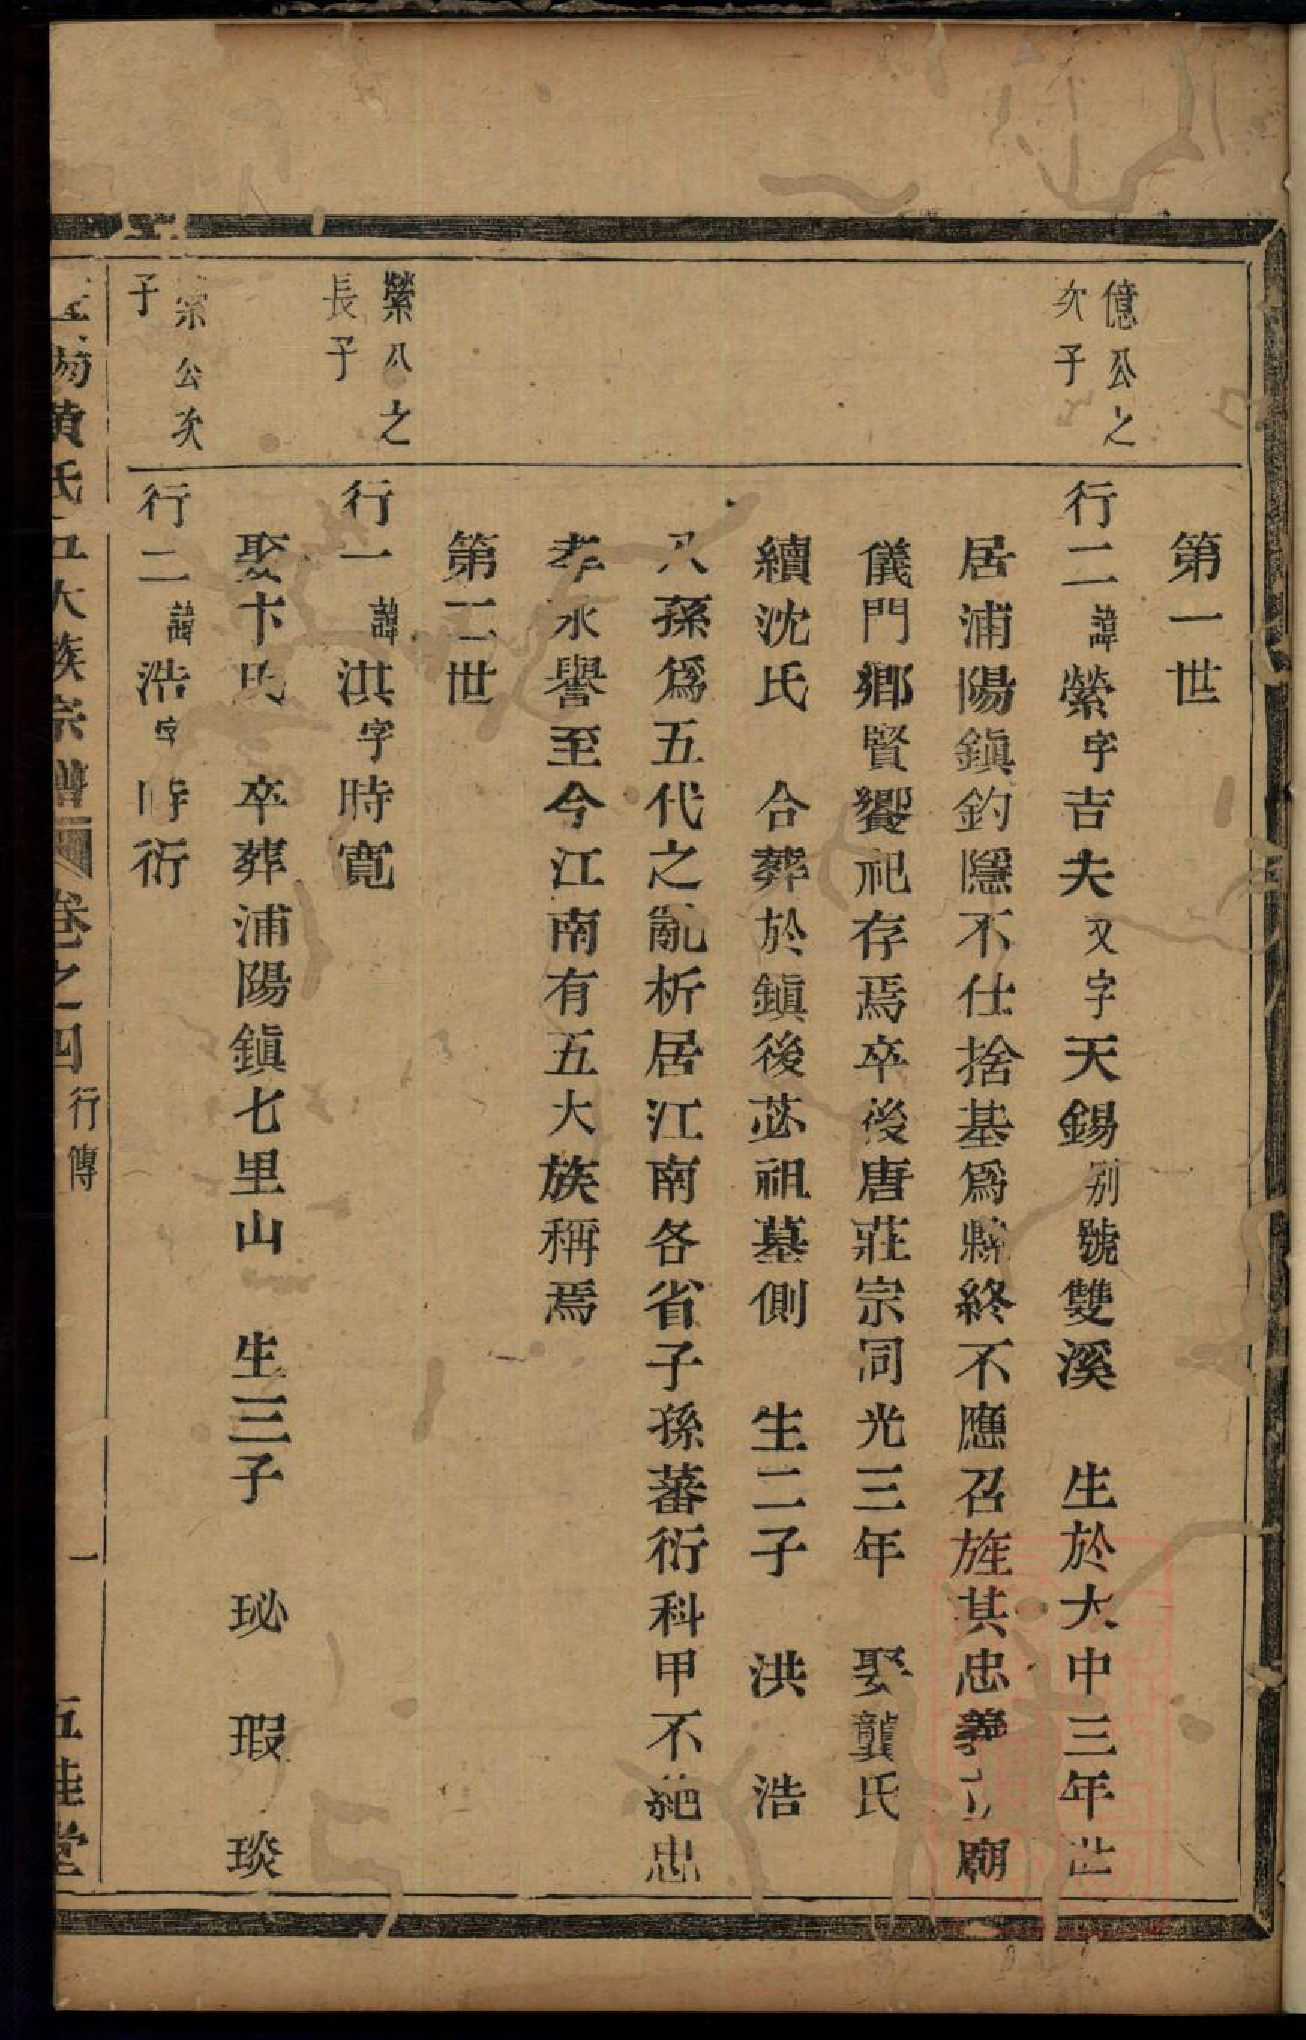 第一世
億公之
次子
行二諱縈字吉夫又字天錫別號雙溪　生於大中三年世
居浦陽鎮釣隱不仕捨基爲縣終不應召旌其忠義立廟
儀門鄉賢饗祀存焉卒後唐莊宗同光三年　娶龔氏
續沈氏　合葬於鎮後苾祖墓側　生二子　洪　浩
八孫爲五代之亂析居江南各省子孫蕃衍科甲不絕忠
孝永譽至今江南有五大族稱焉
第二世
縈公之
長子
行一諱淇字時寬
娶卞氏　卒葬浦陽鎮七里山　生三子　珌　瑕　琰
縈公次
子
行二諱浩字時衍
黃氏五大族宗譜　卷之四　行傳　一　五桂堂